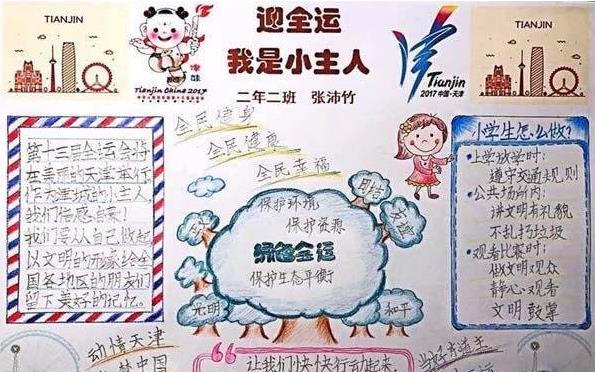 TIANJIN
迎全运
我是小主人
二年二班 张沛竹
TIANJIN
津娃
Tianjin China 2017
Tianjin
2017中国·天津
第十三届全运会将
在美丽的天津举行
作为天津城的小主人,
我们倍感自豪!
我们要从自己做起
以文明的形象给全
国各地区的朋友们
留下美好的记忆。
全民健身
全民健康
全民幸福
保护环境
保护资源
绿色全运
保护生态平衡
团结
友谊
光明
和平
小学生怎么做?
·上学放学时:
遵守交通规则
·公共场所内:
讲文明有礼貌
不乱扔垃圾
·观看比赛时:
做文明观众
静心观看
文明鼓掌
动情天津
梦中国
让我们快快行动起来,
当好东道主